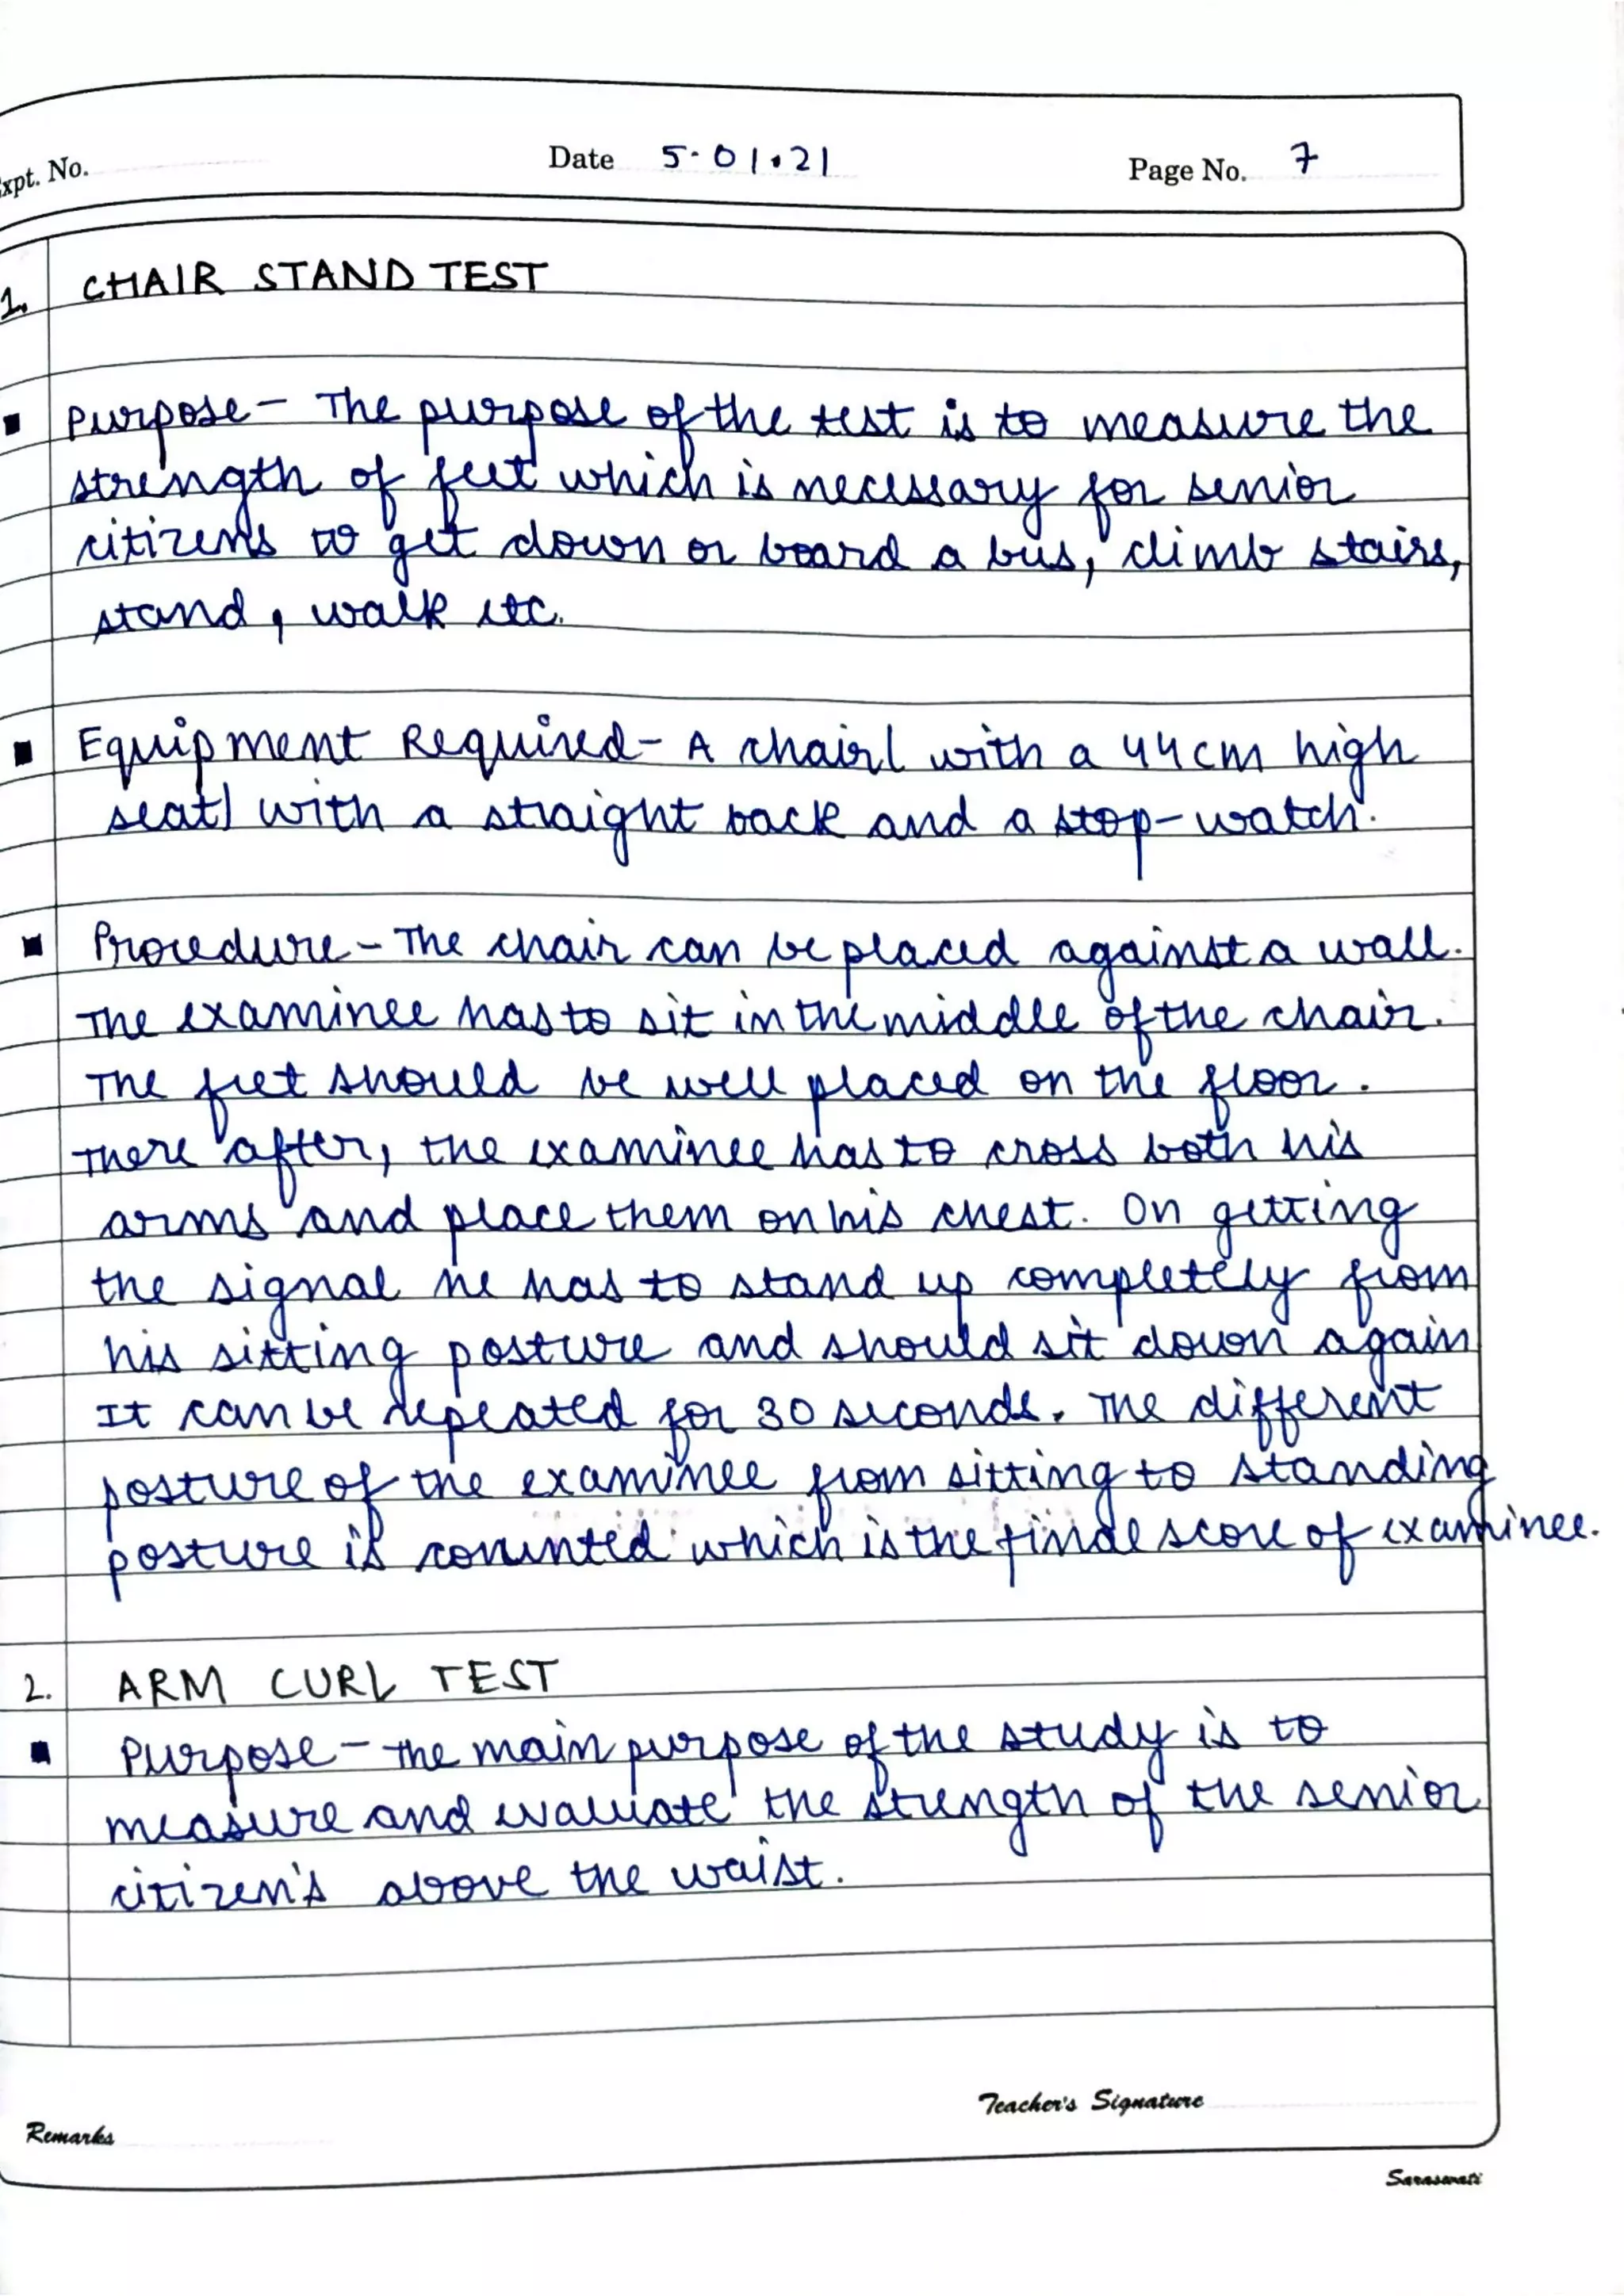 Expt. No.
Date 5.01.21
Page No. 7
1. CHAIR STAND TEST
▪ Purpose - The purpose of the test is to measure the
strength of feet which is necessary for senior
citizens to get down or board a bus, climb stairs,
stand, walk etc.
▪ Equipment Required - A chair ( with a 44cm high
seat) with a straight back and a stop-watch.
▪ Procedure - The chair can be placed against a wall.
The examinee has to sit in the middle of the chair.
The feet should be well placed on the floor.
There after, the examinee has to cross both his
arms and place them on his chest. On getting
the signal he has to stand up completely from
his sitting posture and should sit down again
It can be repeated for 30 seconds. The different
posture of the examinee from sitting to standing
posture is counted which is the final score of examinee.
2. ARM CURL TEST
▪ Purpose - The main purpose of the study is to
measure and evaluate the strength of the senior
citizen's above the waist.
Teacher's Signature
Remarks
Saraswati